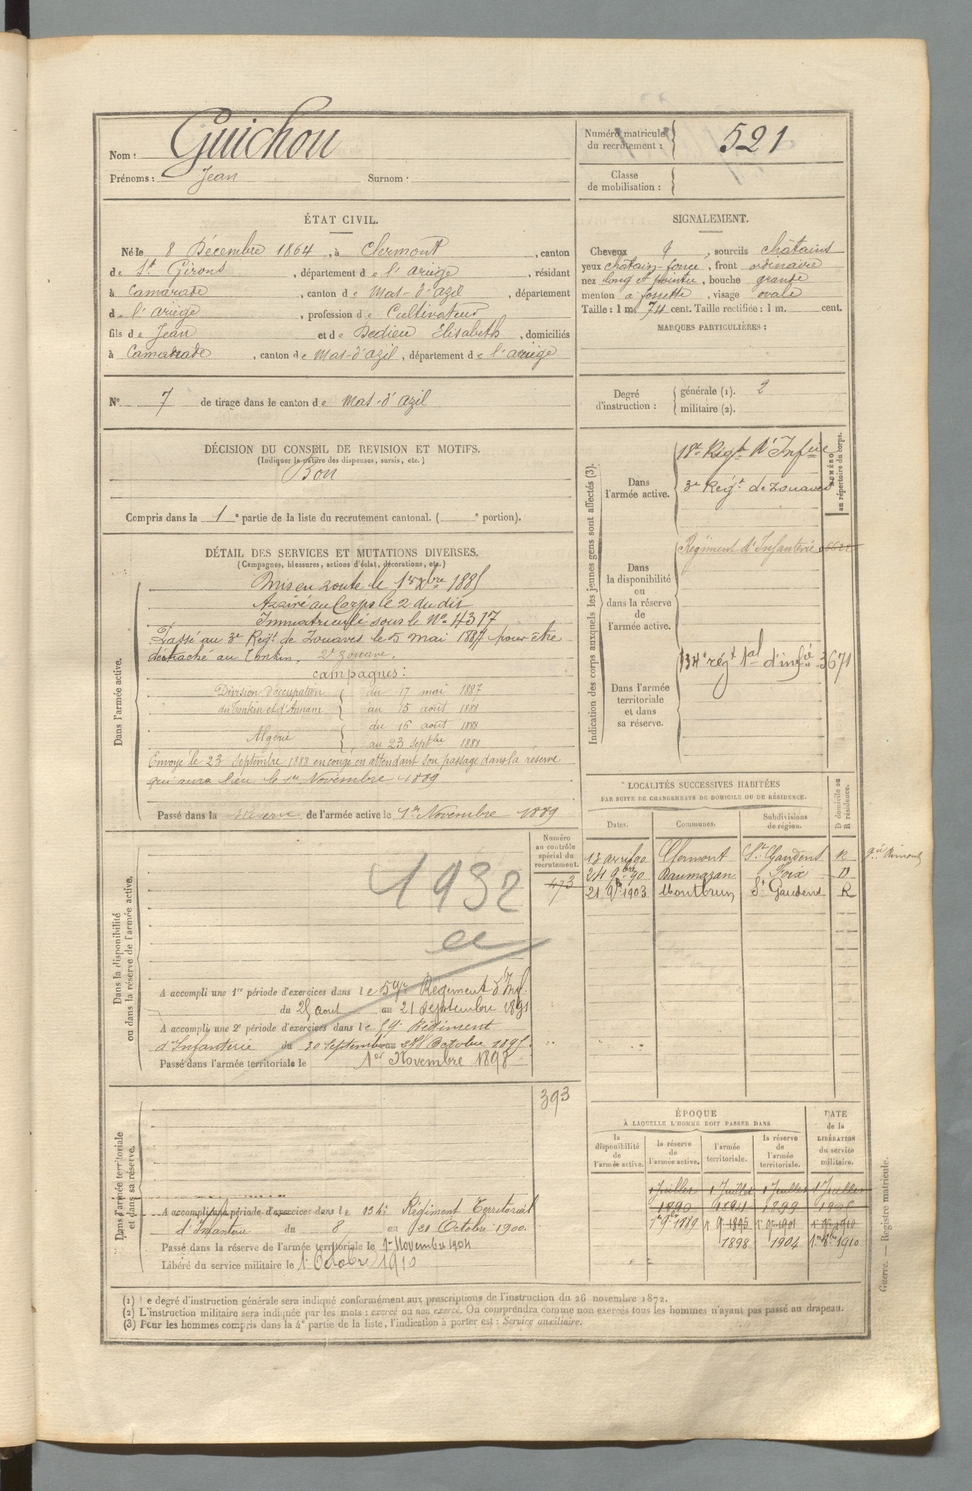 Nom : Guichou
Prénoms : Jean Surnom :
Numéro matricule du recrutement : 521
Classe de mobilisation :
ÉTAT CIVIL.
Né le 8 Décembre 1864, à Clermont, canton
de St Girons, département de l'ariège, résidant
à Camarade, canton de Mas-d'azil, département
de l'ariège, profession de Cultivateur
fils de Jean et de Dedieu Elisabeth, domiciliés
à Camarade, canton de Mas-d'azil, département de l'ariège
N° 7 de tirage dans le canton de Mas-d'azil
SIGNALEMENT.
Cheveux , sourcils chatains
yeux chatain-foncé, front ordinaire
nez long et pointu, bouche grande
menton à fossette, visage ovale
Taille : 1 m. 74 cent. Taille rectifiée : 1 m. cent.
MARQUES PARTICULIÈRES :
Degré d'instruction : générale (1). 2
militaire (2).
DÉCISION DU CONSEIL DE REVISION ET MOTIFS.
(Indiquer la nature des dispenses, sursis, etc.)
Bon
Compris dans la 1e partie de la liste du recrutement cantonal. ( e portion).
DÉTAIL DES SERVICES ET MUTATIONS DIVERSES.
(Campagnes, blessures, actions d'éclat, décorations, etc.)
Dans l'armée active.
Mis en route le 1er Xbre 1885
Arrivé au Corps le 2 du dit
Immatriculé sous le No 4317
Passé au 3e Régt de Zouaves le 5 mai 1887 pour être
détaché au Tonkin. 2e Zouave.
campagnes :
Division d'occupation du 17 mai 1887
du Tonkin et d'Annam au 15 août 1888
Algérie du 16 août 1888
au 23 septbre 1888
Envoyé le 23 Septembre 1888 en congé en attendant son passage dans la réserve
qui aura lieu le 1er Novembre 1889
Passé dans la réserve de l'armée active le 1er Novembre 1889
Indication des corps auxquels les jeunes gens sont affectés (3).
NUMÉRO au répertoire du corps.
Dans l'armée active.
18e Régt d'Infrie
3e Régt de Zouaves
Dans la disponibilité ou dans la réserve de l'armée active.
Régiment d'Infanterie
Dans l'armée territoriale et dans sa réserve.
134e régt tal d'infie 3671
LOCALITÉS SUCCESSIVES HABITÉES
PAR SUITE DE CHANGEMENTS DE DOMICILE OU DE RÉSIDENCE.
Dates. Communes. Subdivisions de région. D domicile ou R résidence.
18 avril 90 Clermont St Gaudens R
24 9bre 90 Daumazan Foix D
21 9b 1903 Montbrun St Gaudens R
Dans la disponibilité ou dans la réserve de l'armée active.
Numéro au contrôle spécial du recrutement.
473
1932
A accompli une 1re période d'exercices dans le 59e Régiment d'Inf.
du 25 aout au 21 Septembre 1891
A accompli une 2e période d'exercices dans le 59e Régiment
d'Infanterie du 30 Septembre au 27 Octobre 1895
Passé dans l'armée territoriale le 1er Novembre 1898
Dans l'armée territoriale et dans sa réserve.
393
A accompli une période d'exercices dans le 134e Régiment Territorial
d'Infanterie du 8 au 21 Octobre 1900.
Passé dans la réserve de l'armée territoriale le 1er Novembre 1904
Libéré du service militaire le 1er Octobre 1910
ÉPOQUE
À LAQUELLE L'HOMME DOIT PASSER DANS
la disponibilité de l'armée active. la réserve de l'armée active. l'armée territoriale. la réserve de l'armée territoriale. DATE de la LIBÉRATION du service militaire.
1 Juillet 1 Juillet 1 Juillet 1 Juillet
1890 1899 1905
1er 9bre 1889 1898 1904 1910
Guerre. — Registre matricule.
(1) Le degré d'instruction générale sera indiqué conformément aux prescriptions de l'instruction du 26 novembre 1872.
(2) L'instruction militaire sera indiquée par les mots : exercé ou non exercé. On comprendra comme non exercés tous les hommes n'ayant pas passé au drapeau.
(3) Pour les hommes compris dans la 4e partie de la liste, l'indication à porter est : Service auxiliaire.